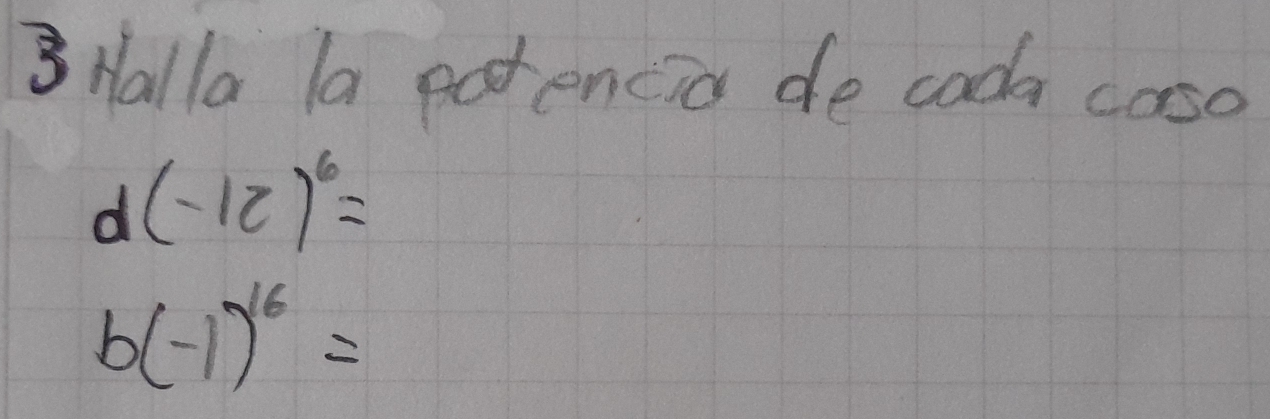 3 Halla la potencia de cada caso
d(-12)⁶=
b(-1)¹⁶ =